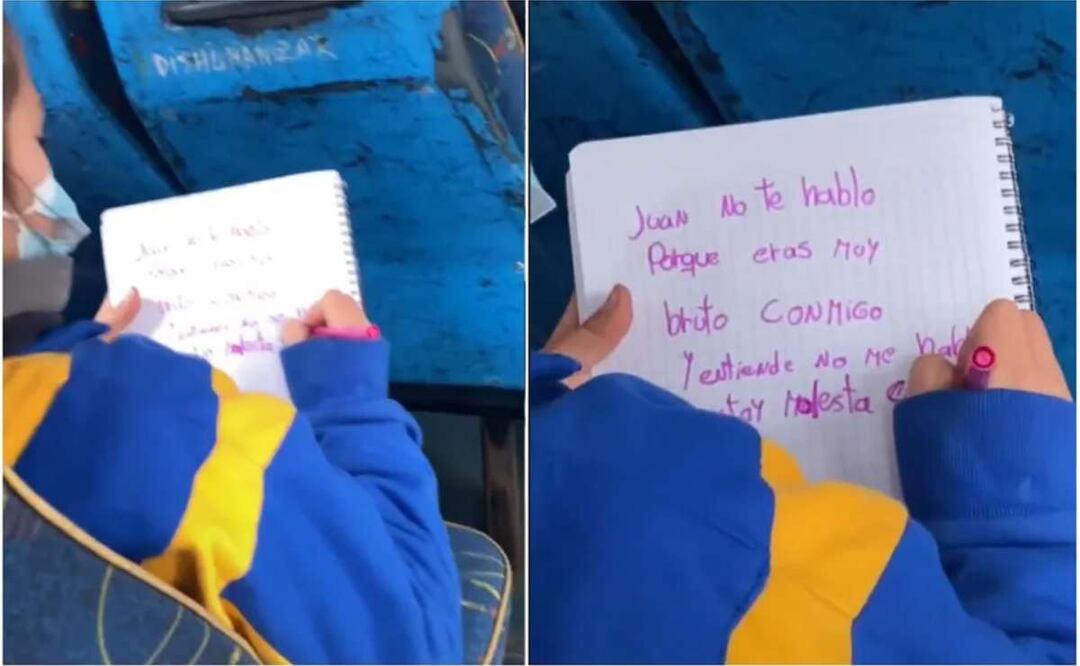 DISHUMANZAR
Juan No te hablo
Porque eras moy
bruto CONMIGO
Y entiende No me habl
stay molesta